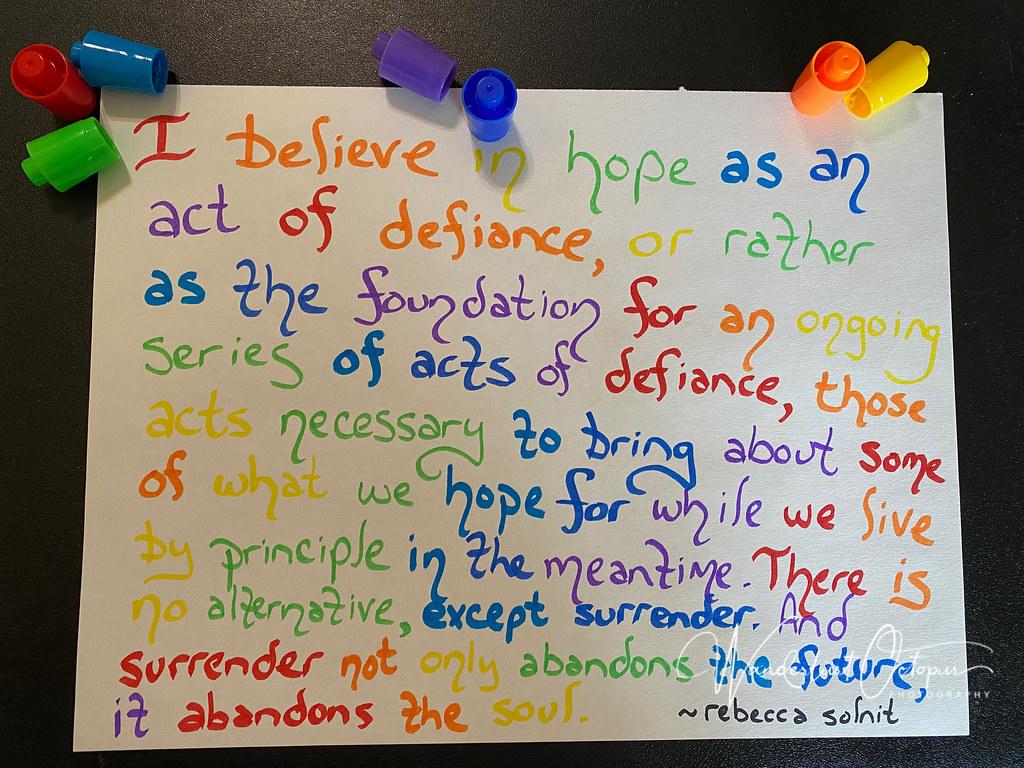 I believe in hope as an
act of defiance, or rather
as the foundation for an ongoing
series of acts of defiance, those
acts necessary to bring about some
of what we hope for while we live
by principle in the meantime. There is
no alternative, except surrender. And
surrender not only abandons the future,
it abandons the soul.
~rebecca solnit
Wanderlust Octopus
PHOTOGRAPHY